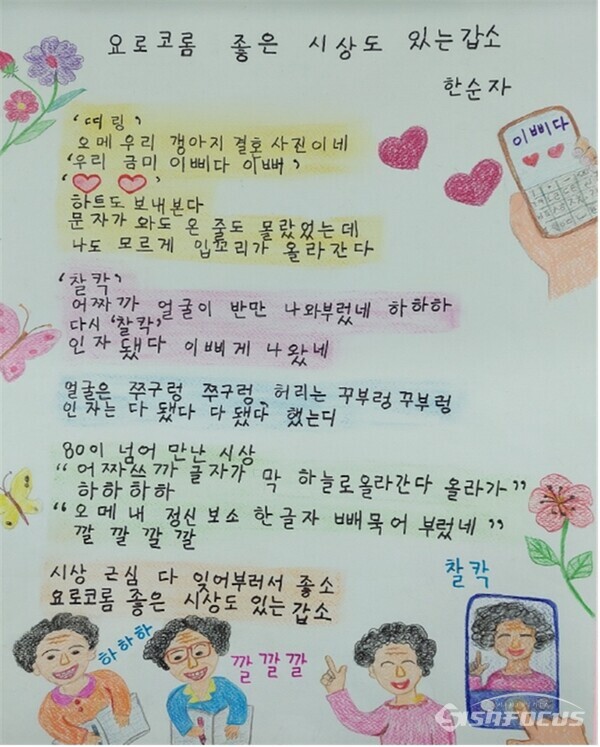 요로코롬 좋은 시상도 있는갑소
한순자
'띠링'
오메 우리 갱아지 결혼 사진이네
'우리 금미 이삐다 이뻐'
'♥ ♥'
하트도 보내본다
문자가 와도 온 줄도 몰랐었는데
나도 모르게 입꼬리가 올라간다
이삐다
'찰칵'
어짜까 얼굴이 반만 나와부렀네 하하하
다시 '찰칵'
인자 됐다 이삐게 나왔네
얼굴은 쭈구렁 쭈구렁, 허리는 꾸부렁 꾸부렁
인자는 다 됐다 다 됐다 했는디
80이 넘어 만난 시상
"어짜쓰까 글자가 막 하늘로 올라간다 올라가"
하하하하
"오메 내 정신 보소 한글자 빼묵어 부렀네"
깔 깔 깔 깔
시상 근심 다 잊어부러서 좋소
요로코롬 좋은 시상도 있는갑소
찰칵
하하하
깔깔깔
SISAFOCUS